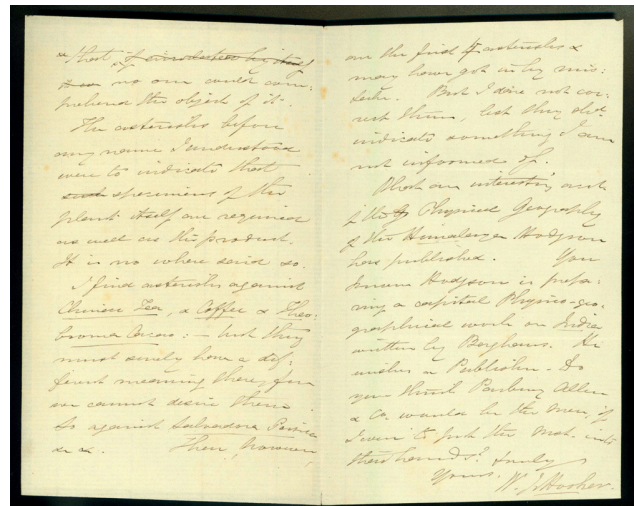 "that if circulated by itself
no one could com:
prehend the object of it.
The asterisks before
my name I understood
were to indicate that
such specimens of the
plant itself are required
as well as the product.
It is no where said so.
I find asterisks against
Chinese Tea, & Coffee & Theo:
broma Cacao: — but they
must surely have a dif:
ferent meaning there, for
we cannot desire them.
So against Salvadora Persica
&c &c. These, however
are the first asterisks &
may have got in by mis:
take. But I dare not cor:
rect them, lest they did
indicate something I am
not informed of.
What an interesting work
of the Physical Geography
of the Himalaya Hodgson
have published. You
know Hodgson is prepa:
ring a capital Physico-geo:
graphical work on India
written by Berghaus. He
wishes a Publisher. Do
you think Parbury Allen
& Co. would be the men, if
I were to put the mat. into
their hands? truly
Yours. W. J. Hooker.